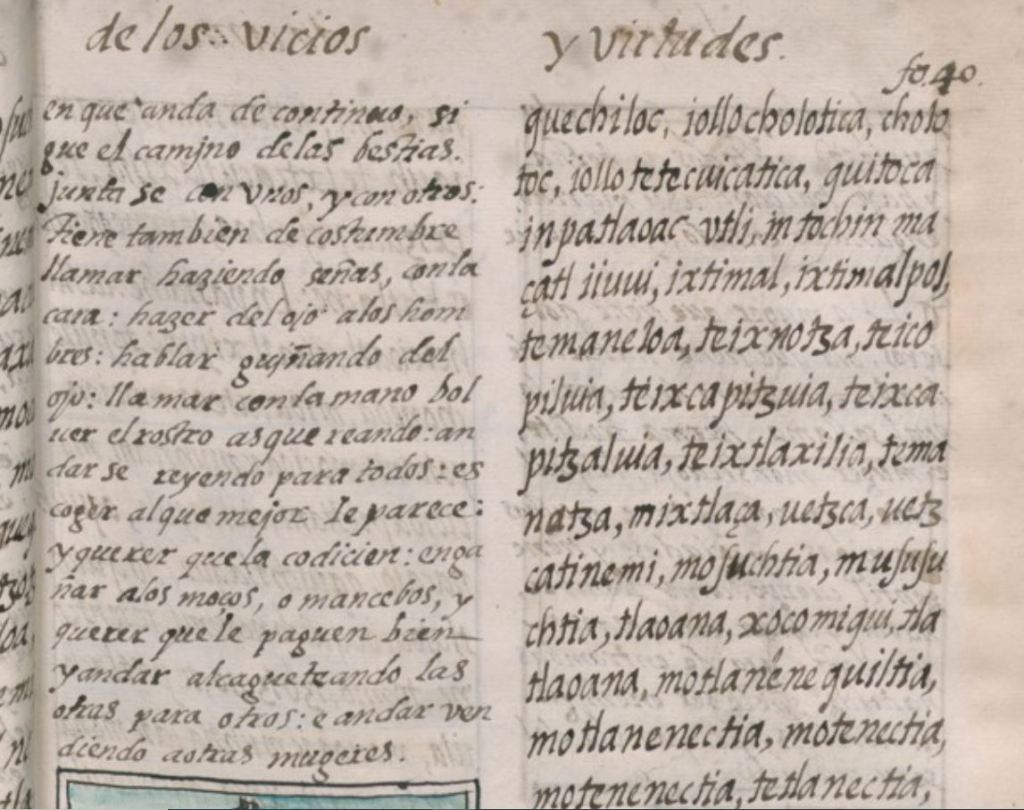 de los vicios
y virtudes.
fo. 40.
en que anda de continuo, si
gue el camjno delas bestias.
junta se con vnos, y con otros:
Tiene tambien de costumbre
llamar haziendo señas, con la
cara: hazer del ojo alos hom
bres: hablar gujñando del
ojo: llamar con la mano bol
uer el rostro asquereando: an
dar se reyendo para todos: es
coger al que mejor le parece:
y querer que la codicien: enga
ñar alos moços, o mancebos, y
querer que le paguen bien
y andar alcagueteando las
otras para otros: e andar ven
diendo aotras mugeres.
quechiloc, iollocholotica, cholo
toc, iollotetecuicatica, quitoca
in patlaoac vtli, in tochin ma
çatl iiuui, ixtimal, ixtimalpol,
temaneloa, teixnotza, teico
piluia, teixcapitzuia, teixca
pitzaluia, teixtlaxilia, tema
natza, mixtlaça, uetzca, uetz
catinemi, mosuchtia, mususu
chtia, tlaoana, xocomiqui, tla
tlaoana, motlanénequiltia,
motlanenectia, motenectia,
motenenectia, tetlanectia,